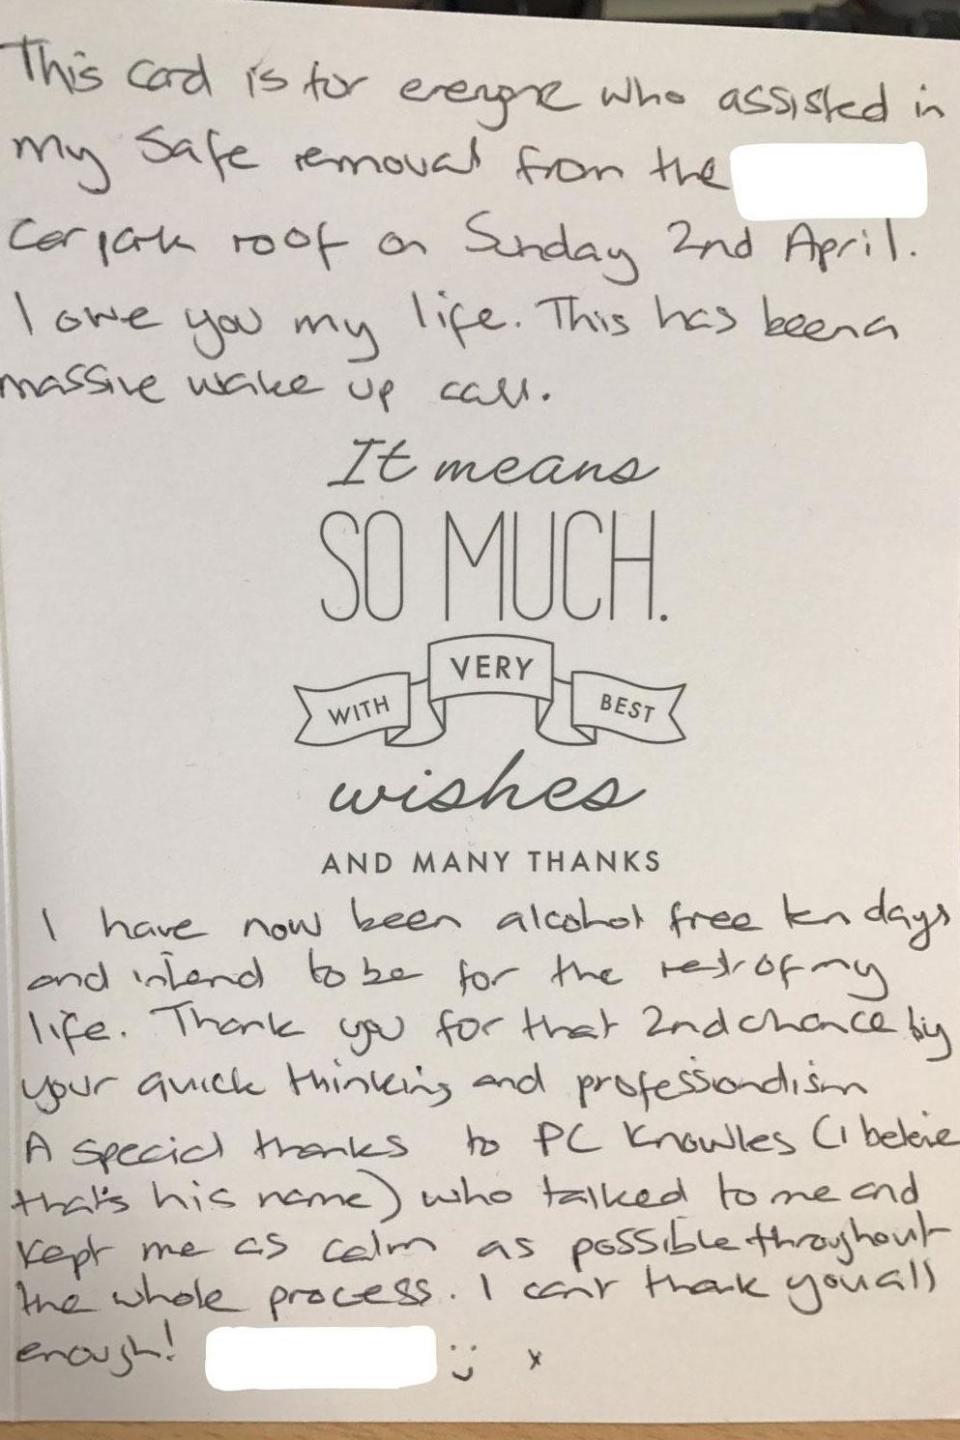 This card is for everyone who assisted in
my safe removal from the
car park roof on Sunday 2nd April.
I owe you my life. This has been a
massive wake up call.
It means
SO MUCH.
WITH VERY BEST
wishes
AND MANY THANKS
I have now been alcohol free ten days
and intend to be for the rest of my
life. Thank you for that 2nd chance by
your quick thinking and professionalism
A special thanks to PC Knowles (I beleive
that's his name) who talked to me and
kept me as calm as possible throughout
the whole process. I can't thank you all
enough! :) x